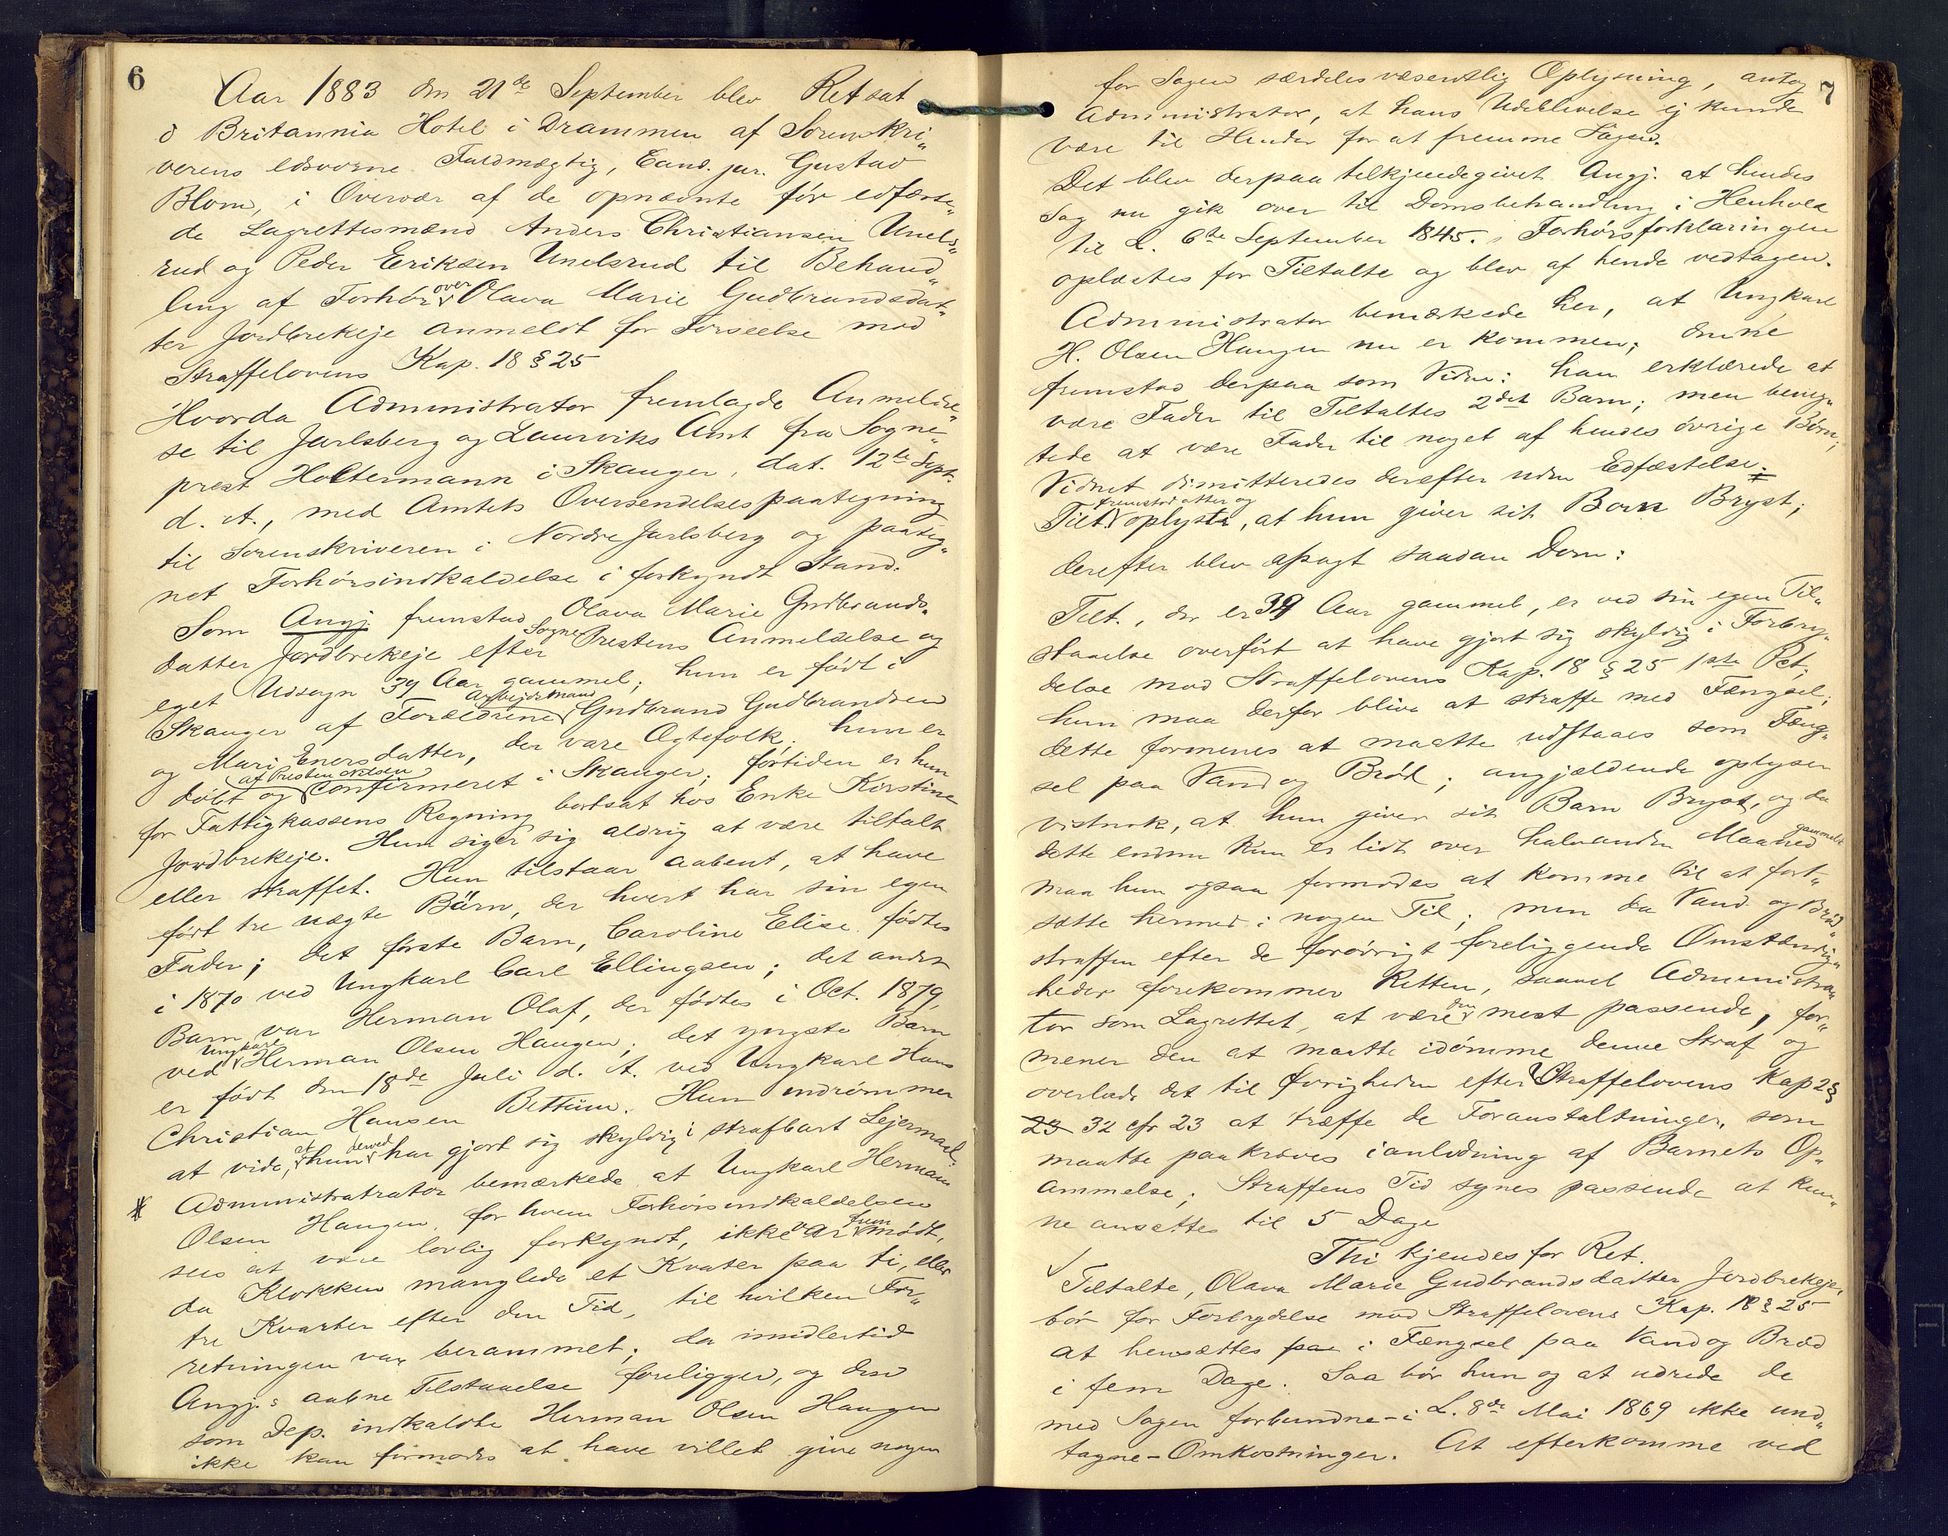 6
Aar 1883 den 21de September blev Ret sat
i Britannia Hotel i Drammen af Sorenskri„
verens edsvorne Fuldmægtig, Cand. jur. Gustav
Blom, i Overvær af de opnævnte før edfæste„
de Lagrettesmænd Anders Christiansen Unels„
rud og Peder Eriksen Unelsrud til Behand„
ling af Forhør over Olava Marie Gudbrandsdat„
ter Jordbrekeje anmeldt for Forseelse mod
Straffelovens Kap. 18 § 25
Hvorda Administrator fremlagde Anmeldel„
se til Jarlsberg og Laurviks Amt fra Sogne„
prest Holtermann i Skauger, dat. 12te Sept.
d. A., med Amtets Oversendelsespaategning
til Sorenskriveren i Nordre Jarlsberg og paateg„
net Forhørsindkaldelse i forkyndt Stand.
Som Angj. fremstod Olava Marie Gudbrands„
datter Jordbrekeje efter Sogne Prestens Anmeldelse og
eget Udsagn 39 Aar gammel; hun er født i
Skauger af Forældrene Arbejdsmand Gudbrand Gudbrandsen
og Mari Enersdatter, der vare Ægtefolk; hun er
døbt og af Presten Nielsen confirmeret i Skauger; fortiden er hun
for Fattigkassens Regning bortsat hos Enke Kirstine
Jordbrekeje. Hun siger sig aldrig at være tiltalt
eller straffet. Hun tilstaar aabent, at have
født tre uægte Børn, der hvert har sin egen
Fader; det første Barn, Caroline Elise fødtes
i 1870 ved Ungkarl Carl Ellingsen; det andet
Barn var Herman Olaf, der fødtes i Oct. 1879,
ved Ungkarl Herman Olsen Haugen; det yngste Barn
er født den 18de Juli d. A. ved Ungkarl Hans
Christian Hansen Bettum. Hun indrømmer
at vide, at hun derved har gjort sig skyldig i strafbart Lejermaal.
# Administratrator bemærkede at Ungkarl Herman
Olsen Haugen, for hvem Forhørsindkaldelsen
sees at være lovlig forkyndt, ikke var frem mødt,
da Klokken manglede et Kvater paa ti, eller
tre Kvarter efter den Tid, til hvilken For„
retningen var berammet; da imidlertid
Angj.s aabne Tilstaaelse foreligger, og den
som Dep. indkaldte Herman Olsen Haugen
ikke kan formodes at have villet give nogen
7
for Sagen særdeles væsentlig Oplysning, antog
Administrator, at hans Udeblivelse ej kunde
være til Hinder for at fremme Sagen.
Det blev derpaa tilkjendegivet Angj. at hendes
Sag nu gik over til Domsbehandling i Henhold
til L. 6te September 1845. Forhørsforklaringen
oplæstes for Tiltalte og blev af hende vedtagen.
Administrator bemærkede her, at Ungkarl
H. Olsen Haugen nu er kommen; denne
fremstod derpaa som Vidne: han erklærede at
være Fader til Tiltaltes 2det Barn; men beneg„
tede at være Fader til noget af hendes øvrige Børn;
Vidnet dimitteredes derefter uden Edfæstelse. #
Tilt. fremstod atter og oplyste, at hun giver sit Barn Bryst;
derefter blev afsagt saadan Dom:
Tilt., der er 39 Aar gammel, er ved sin egen Til„
staaelse overført at have gjort sig skyldig i Forbry„
delse mod Straffelovens Kap. 18 § 25 1ste Pct.;
hun maa derfor blive at straffe med Fængsel;
dette formenes at maatte udstaaes som Fæng„
sel paa Vand og Brød; angjældende oplyser
vistnok, at hun giver sit Barn Bryst, og da
dette endnu kun er lidt over halvanden Maaned gammelt
maa hun ogsaa formodes at komme til at fort„
sætte hermed i nogen Tid; men da Vand og Brød„
straffen efter de forøvrigt foreliggende Omstændig„
heder forekommer Retten, saavel Administra„
tor som Lagrettet, at være den mest passende, for„
mener den at maatte idømme denne Straf og
overlade det til Øvrigheden efter Straffelovens Kap 2 §
23 32 cfr 23 at træffe de Foranstaltninger, som
maatte paakræves i anledning af Barnets Op„
ammelse; Straffens Tid synes passende at kun„
ne ansættes til 5 Dage
Thi kjendes for Ret.
Tiltalte, Olava Marie Gudbrandsdatter Jordbrekeje,
bør for Forbrydelse mod Straffelovens Kap. 18 § 25
at hensættes paa i Fængsel paa Vand og Brød
i fem Dage. Saa bør hun og at udrede de
med Sagen forbundne – i L. 8de Mai 1869 ikke und„
tagne – Omkostninger. At efterkomme ved